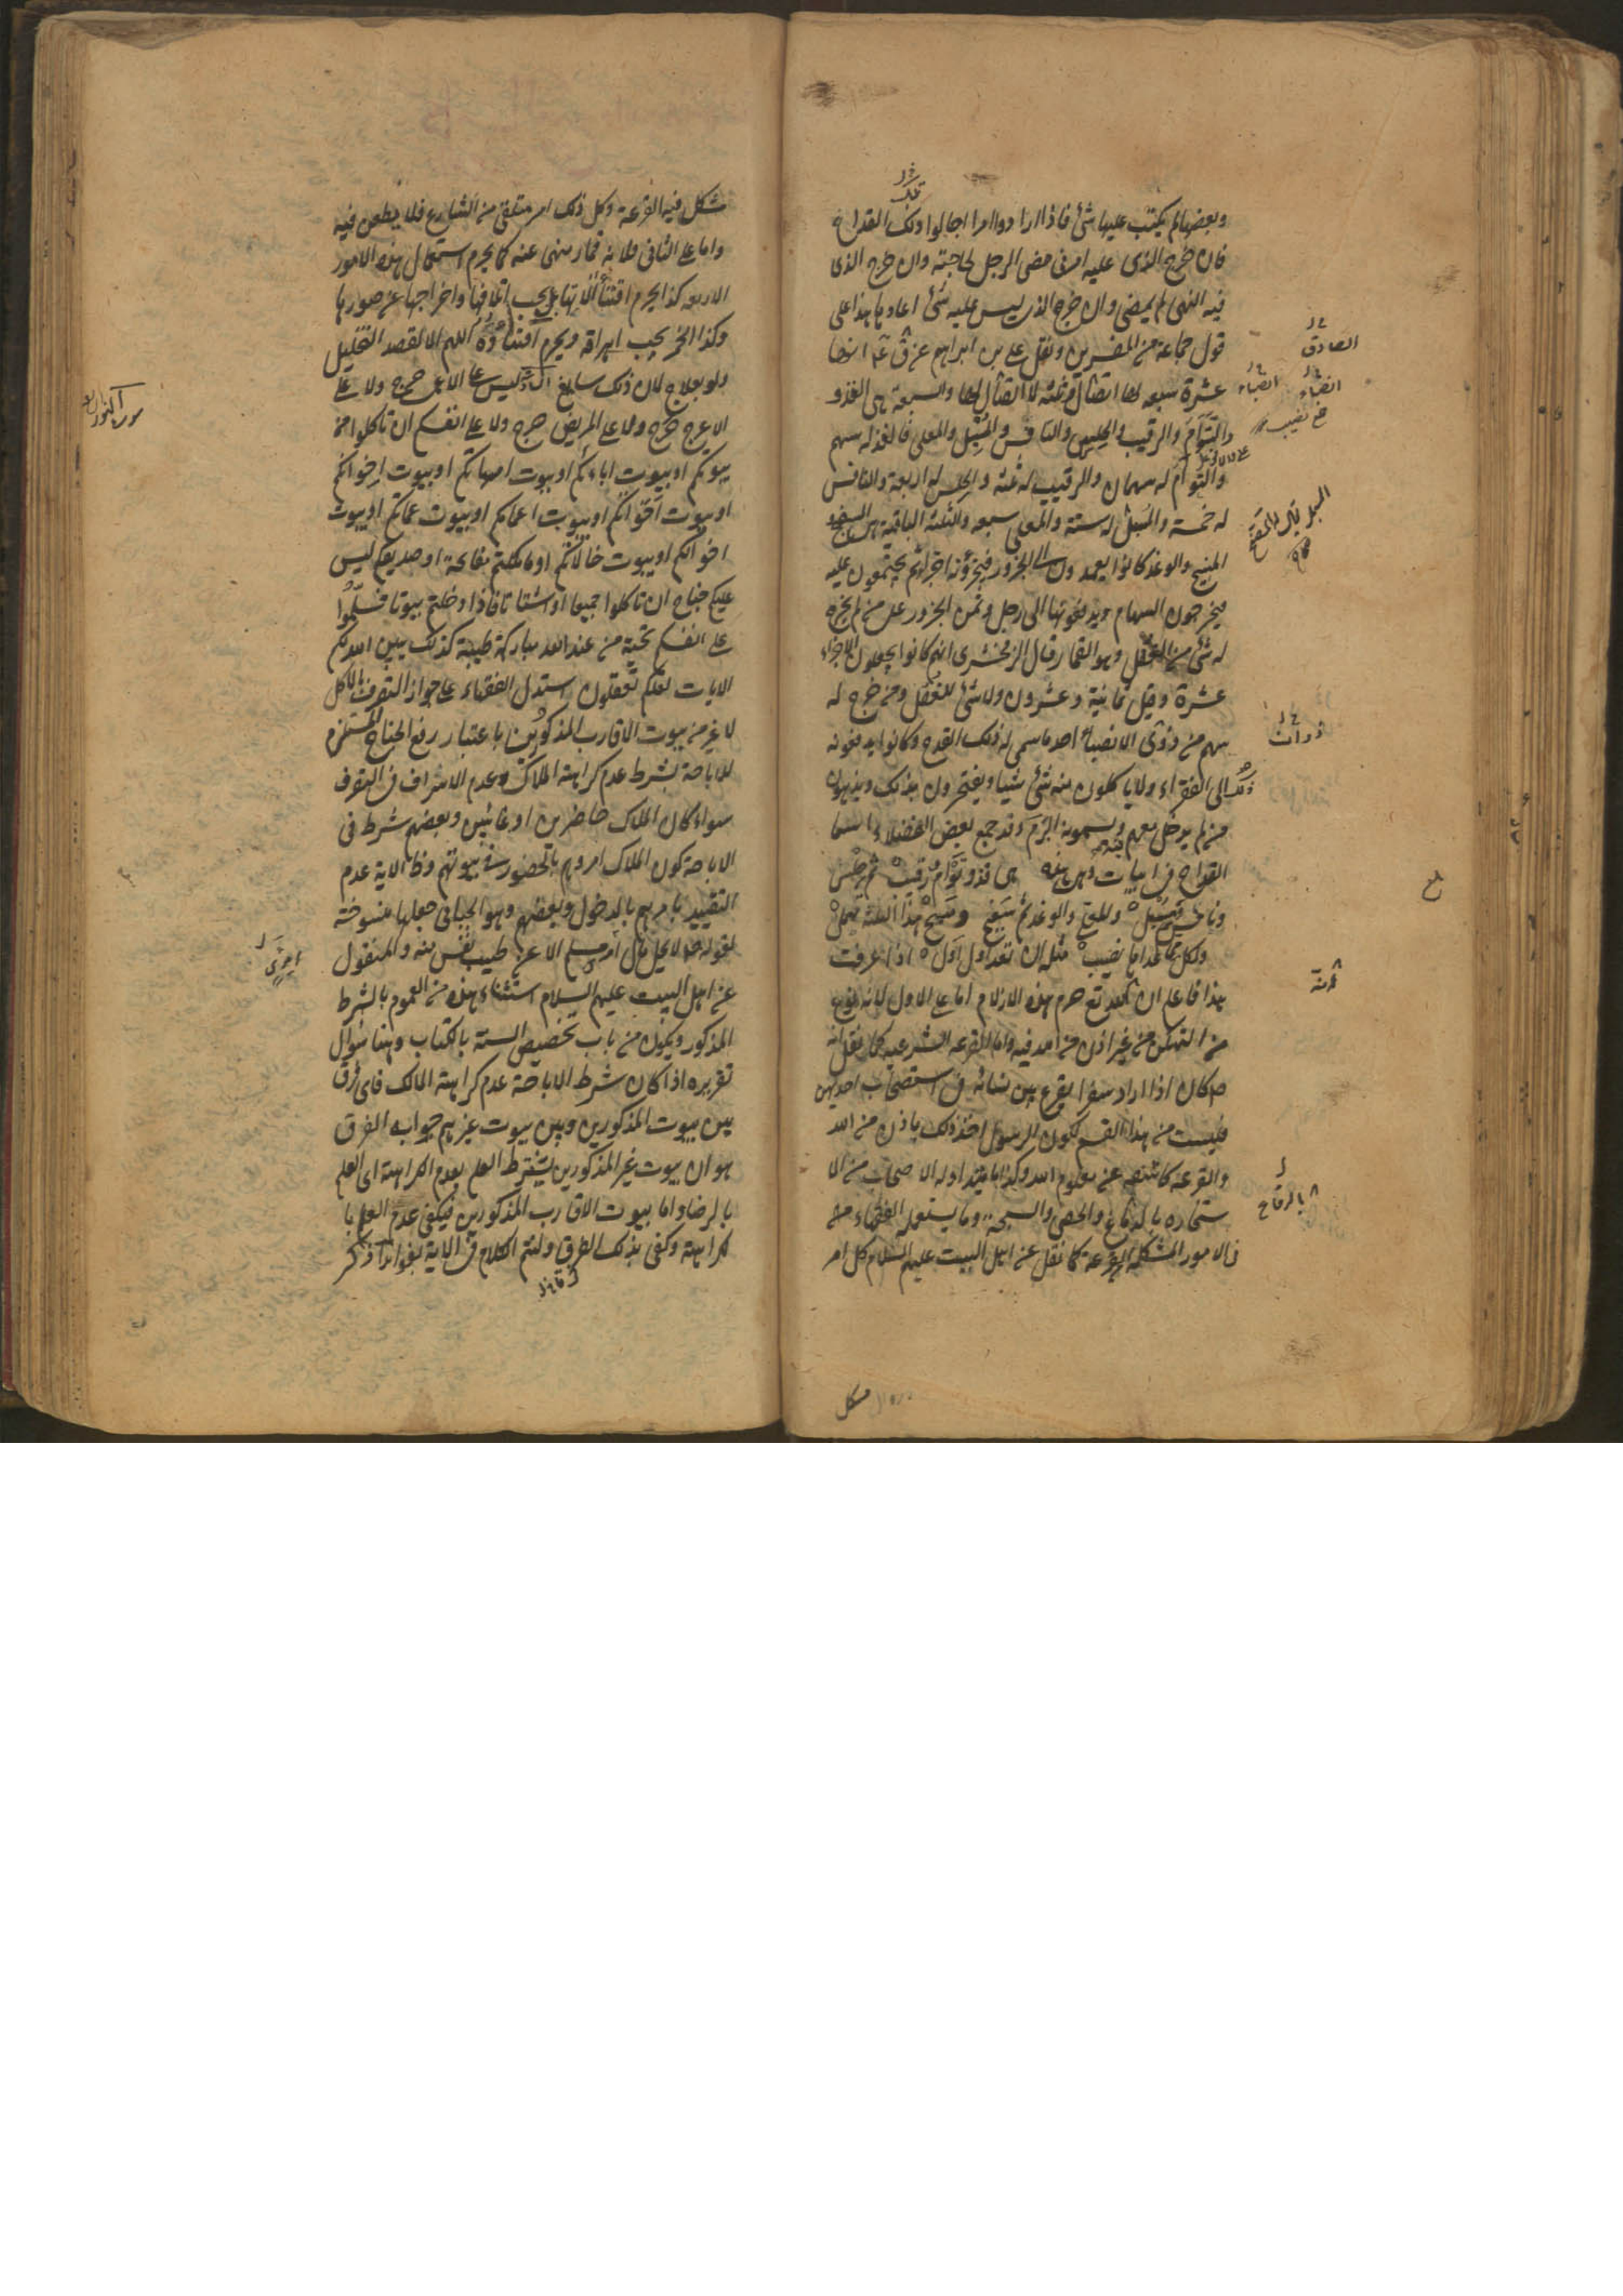 وبعضها لم يكتب عليها شئ فاذا ارادوا امرا اجالوا تلك القداح
فان خرج الذى عليه امرنى مضى الرجل لحاجته وان خرج الذى
فيه النهى لم يمضى وان خرج الذى ليس عليه شئ اعادوها هذا على
قول جماعة من المفسرين ونقل على بن ابراهيم عن ق ع انها
عشرة سبعة لها انصباء وثلثة لا انصباء لها والسبعة هى الفذ و
والتوأم والرقيب والحلس والنافس والمسبل والمعلى فالفذ له سهم
والتوأم له سهمان والرقيب له ثلثة والحلس له اربعة والنافس
له خمسة والمسبل له ستة والمعلى سبعة والثلثة الباقية هى السفيح
المنيح والوغد كانوا يعمدون الى الجزور فيجزؤنه اجزاء ثم يجتمعون عليه
فيخرجون السهام ويدفعونها الى رجل وثمن الجزور على من لم يخرج
له شئ من الغفل وهو القمار قال الزمخشرى انهم كانوا يجعلون الاجزاء
عشرة وقيل ثمانية وعشرون ولا شئ للغفل ومن خرج له
سهم من ذوى الانصباء اخذ ما سمى له ذلك القدح وكانوا يدفعونه
الى الفقراء ولا ياكلون منه شئ شيئا ويفتخرون بذلك ويذمون
من لم يدخل معهم ويسمونه البرم وقد جمع بعض الفضلاء اسما
القداح فى ابيات وهى هذه هى فذ وتوأم ورقيب ثم حلس
ونافس ثم مسبل والمعلى والوغد ثم سفيح ومنيح هذى الثلثة تهمل
ولكل مما عداها نصيب مثله ان تعد اول اول اذا عرفت
هذا فاعلم ان الله تع حرم هذه الازلام اما على الاول لانه نوع
من التهكن من غير اذن من احد فيه واما القرعه الشرعيه كما نقل انه
ص كان اذا اراد سفرا يقرع بين نسائه فى استصحاب احديهن
فليست من هذا القسم لكون الرسول اخذ ذلك باذن من الله
والقرعه كاشفه عن معلوم الله وكذا ما يتداوله الاصحاب من الا
ستخاره بالرقاع والحصى والسبحة وما يستعمله الفقهاء من
فى الامور المشكلة القرعة كما نقل عن اهل البيت عليهم السلام كل امر
الصادق
انصباء
انصباء
خ نصيب
ذوات
ثلثة
بالرقاع
مشكل
شكل فيه القرعة وكل ذلك امر متلقى من الشارع فلا يطعن فيه
واما على الثانى فلانه قمار منهى عنه كما يحرم استعمال هذه الامور
الاربعه كذا يحرم اقتناء آلاتها بل يجب اتلافها واخراجها عن صورها
وكذا الخمر يجب اهراقه ويحرم اقتناؤه اللهم الا لقصد التخليل
ولو بعلاج لان ذلك سايغ ليس على الاعمى حرج ولا على
الاعرج حرج ولا على المريض حرج ولا على انفسكم ان تاكلوا من
بيوتكم او بيوت ابائكم او بيوت امهاتكم او بيوت اخوانكم
او بيوت اخواتكم او بيوت اعمامكم او بيوت عماتكم او بيوت
اخوالكم او بيوت خالاتكم او ما ملكتم مفاتحة او صديقكم ليس
عليكم جناح ان تاكلوا جميعا او اشتاتا فاذا دخلتم بيوتا فسلموا
على انفسكم تحية من عند الله مباركة طيبة كذلك يبين الله لكم
الايات لعلكم تعقلون استدل الفقهاء على جواز التصرف بالاكل
لا غير من بيوت الاقارب المذكورين باعتبار رفع الجناح المستلزم
للاباحة بشرط عدم كراهة الملاك وعدم الاسراف فى التصرف
سواء كان الملاك حاضرين او غائبين وبعضهم شرط فى
الاباحة كون الملاك امروهم بالحضور فى بيوتهم وظ الاية عدم
التقييد بامرهم بالدخول وبعضهم وهو الجبائى جعلها منسوخة
لقوله ص لا يحل مال امرئ مسلم الا عن طيب نفس منه والمنقول
عن اهل البيت عليهم السلام استثناء هذه من العموم بالشرط
المذكور ويكون من باب تخصيص السنة بالكتاب وهنا سؤال
تقريره اذا كان شرط الاباحة عدم كراهة المالك فاى فرق
بين بيوت المذكورين وبين بيوت غيرهم جوابه الفرق
هو ان بيوت غير المذكورين يشترط العلم بعدم الكراهة اى العلم
بالرضا واما بيوت الاقارب المذكورين فيكفى عدم العلم با
لكراهة وكفى بذلك الفرق ولنتم الكلام فى الاية بفوائد ذكر
سورة النور